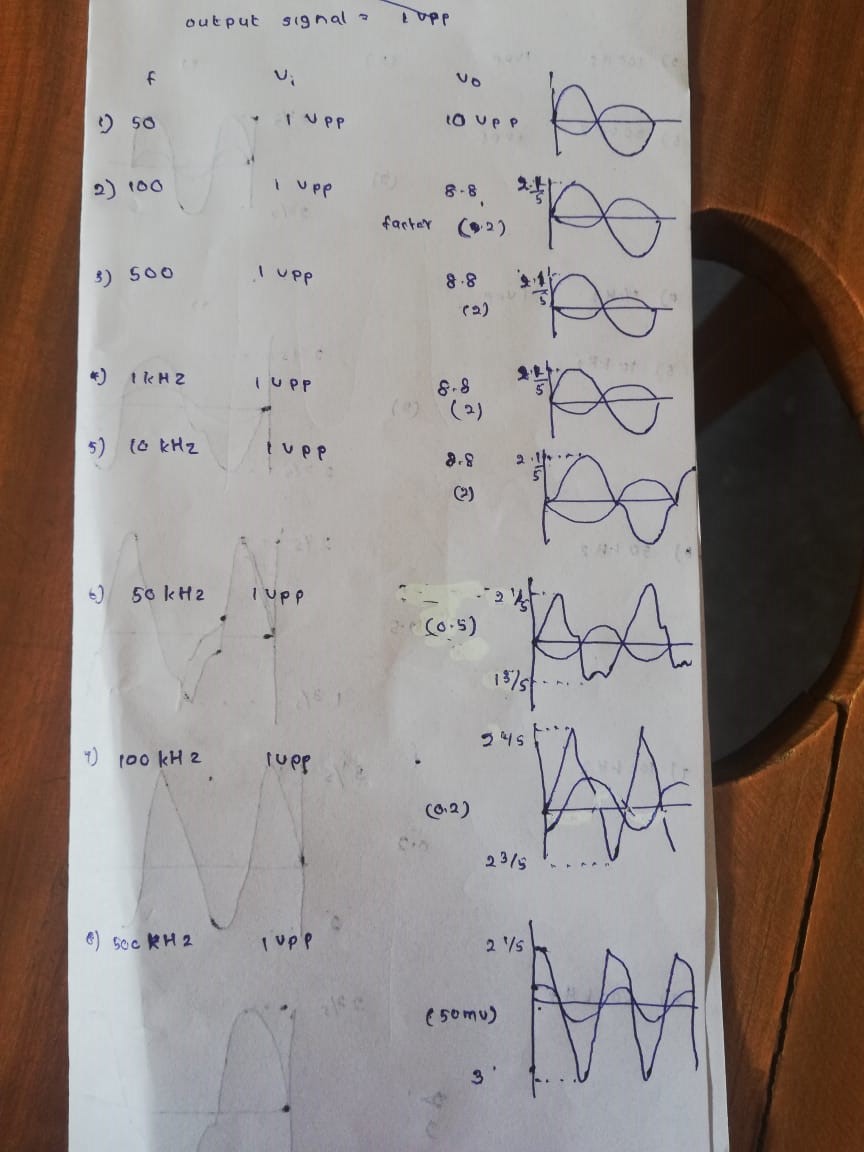 output signal = 1 Vpp
f Vi Vo
1) 50 1 Vpp 10 Vpp
2) 100 1 Vpp 8.8
factor
3) 500 1 Vpp 8.8
(2)
1 kHz 1 Vpp 8.8
(2)
5) 10 kHz 1 Vpp 8.8 2 1/5
(2)
6) 50 kHz 1 Vpp 2 1/5
(0.5)
1 3/5
7) 100 kHz 1 Vpp 2 4/5
(0.2)
2 3/5
8) 500 kHz 1 Vpp 2 1/5
(50mv)
3